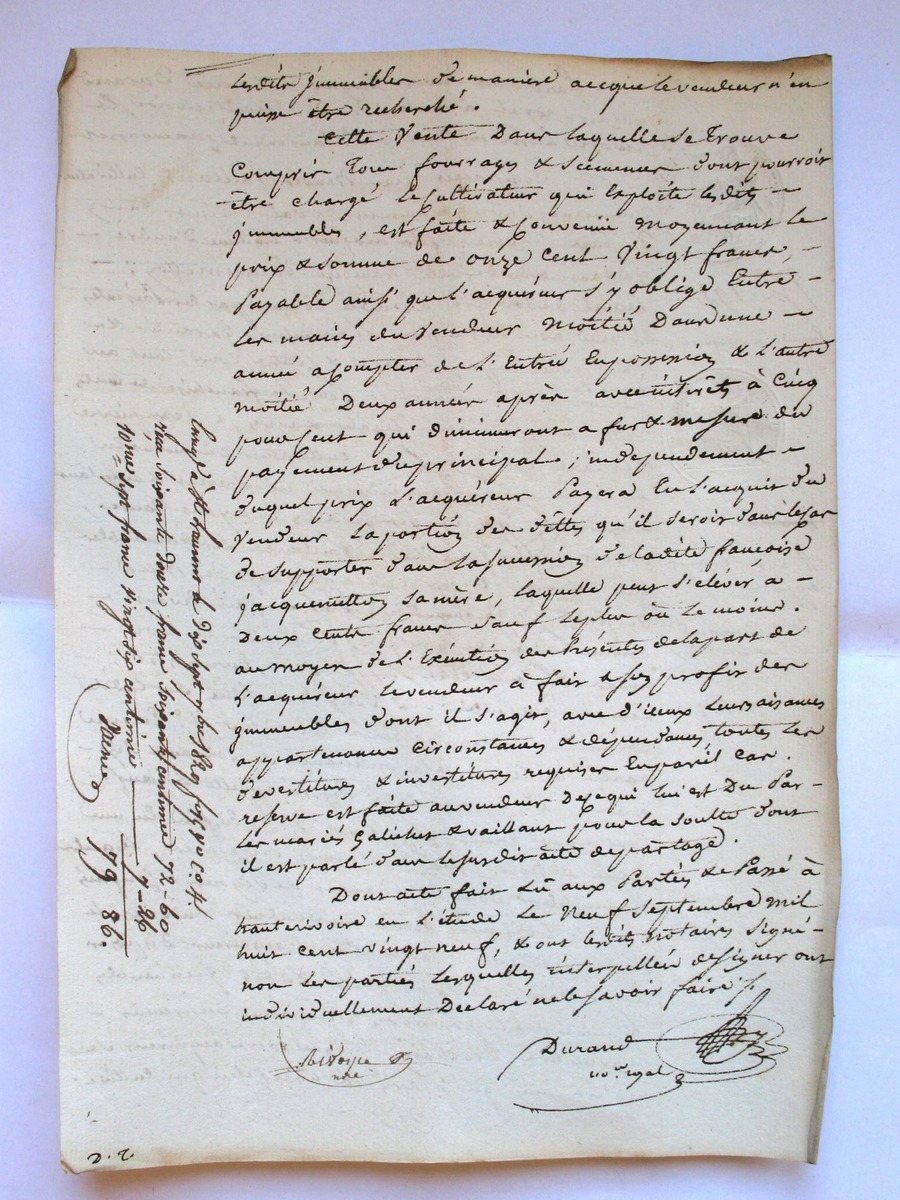 lesdits jmmeubles de maniere acequelevendeur n'en
puisse être recherché.
Cette Vente Dans laquelle se Trouve
Compris Tous fourrages & Semences dont pourroit
être chargé le Cultivateur qui Exploite lesdits
jmmeubles, est faite & Convenüe moyennant le
prix & somme de onze Cent Vingt francs,
Payable ainsi que l'acquéreur s'y oblige Entre
les mains du Vendeur Moitié Dans une
année a Compter de l'Entrée En possession & l'autre
moitié Deux années après avec intérêts à Cinq
pour Cent qui diminueront a fur & mesure du
payement du principal; independement
duquel prix L'acquéreur Payera En l'acquit du
Vendeur La portion des dettes qu'il seroit dans le cas
de supporter dans la succession de ladite françoise
jacquemetton sa mère, laquelle peut s'élever à
Deux Cents francs sauf le plus où le moins.
au moyen de l'Exécution des Présentes de la part de
L'acquéreur le vendeur à fait a son profit des
jmmeubles dont il s'agit, avec d'iceux leurs aisances
appartenances Circonstances & dépendances, toutes les
devestitures & investitures requises En pareil Cas.
reserve est faite au vendeur De ce qui lui est Du Par
les mariés Galichet & vaillant pour la soulte dont
il est parlé dans le susdit acte de partage.
Dont acte fait Lû aux Parties & Passé à
hauterivoire en l'étude Le Neuf Septembre mil
huit cent vingt neuf, & ont lesdits Notaires signé
non les parties lesquelles interpellées de signer ont
individuellement Declaré ne le savoir faire /.
Durand
no.re royal
nre
Enrg.é à St Laurent le Dix Sept 7bre 1829 f° 90
Reçu Soixante douze francs Soixante centimes 72-60
10.me Sept francs vingt six centimes 7-26
79 86.
D. T.